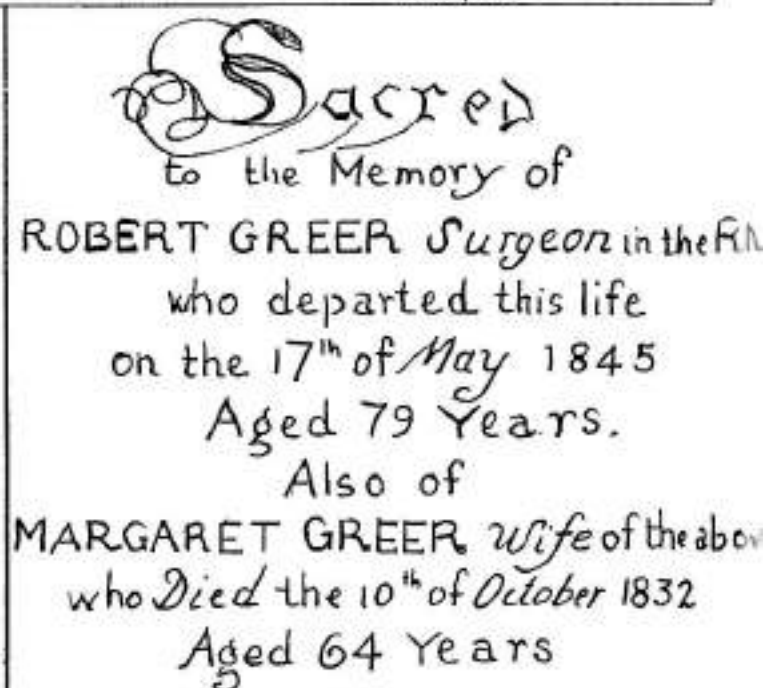 Sacred
to the Memory of
ROBERT GREER Surgeon in the
who departed this life
on the 17th of May 1845
Aged 79 Years.
Also of
MARGARET GREER Wife of the
who Died the 10th of October 1832
Aged 64 Years